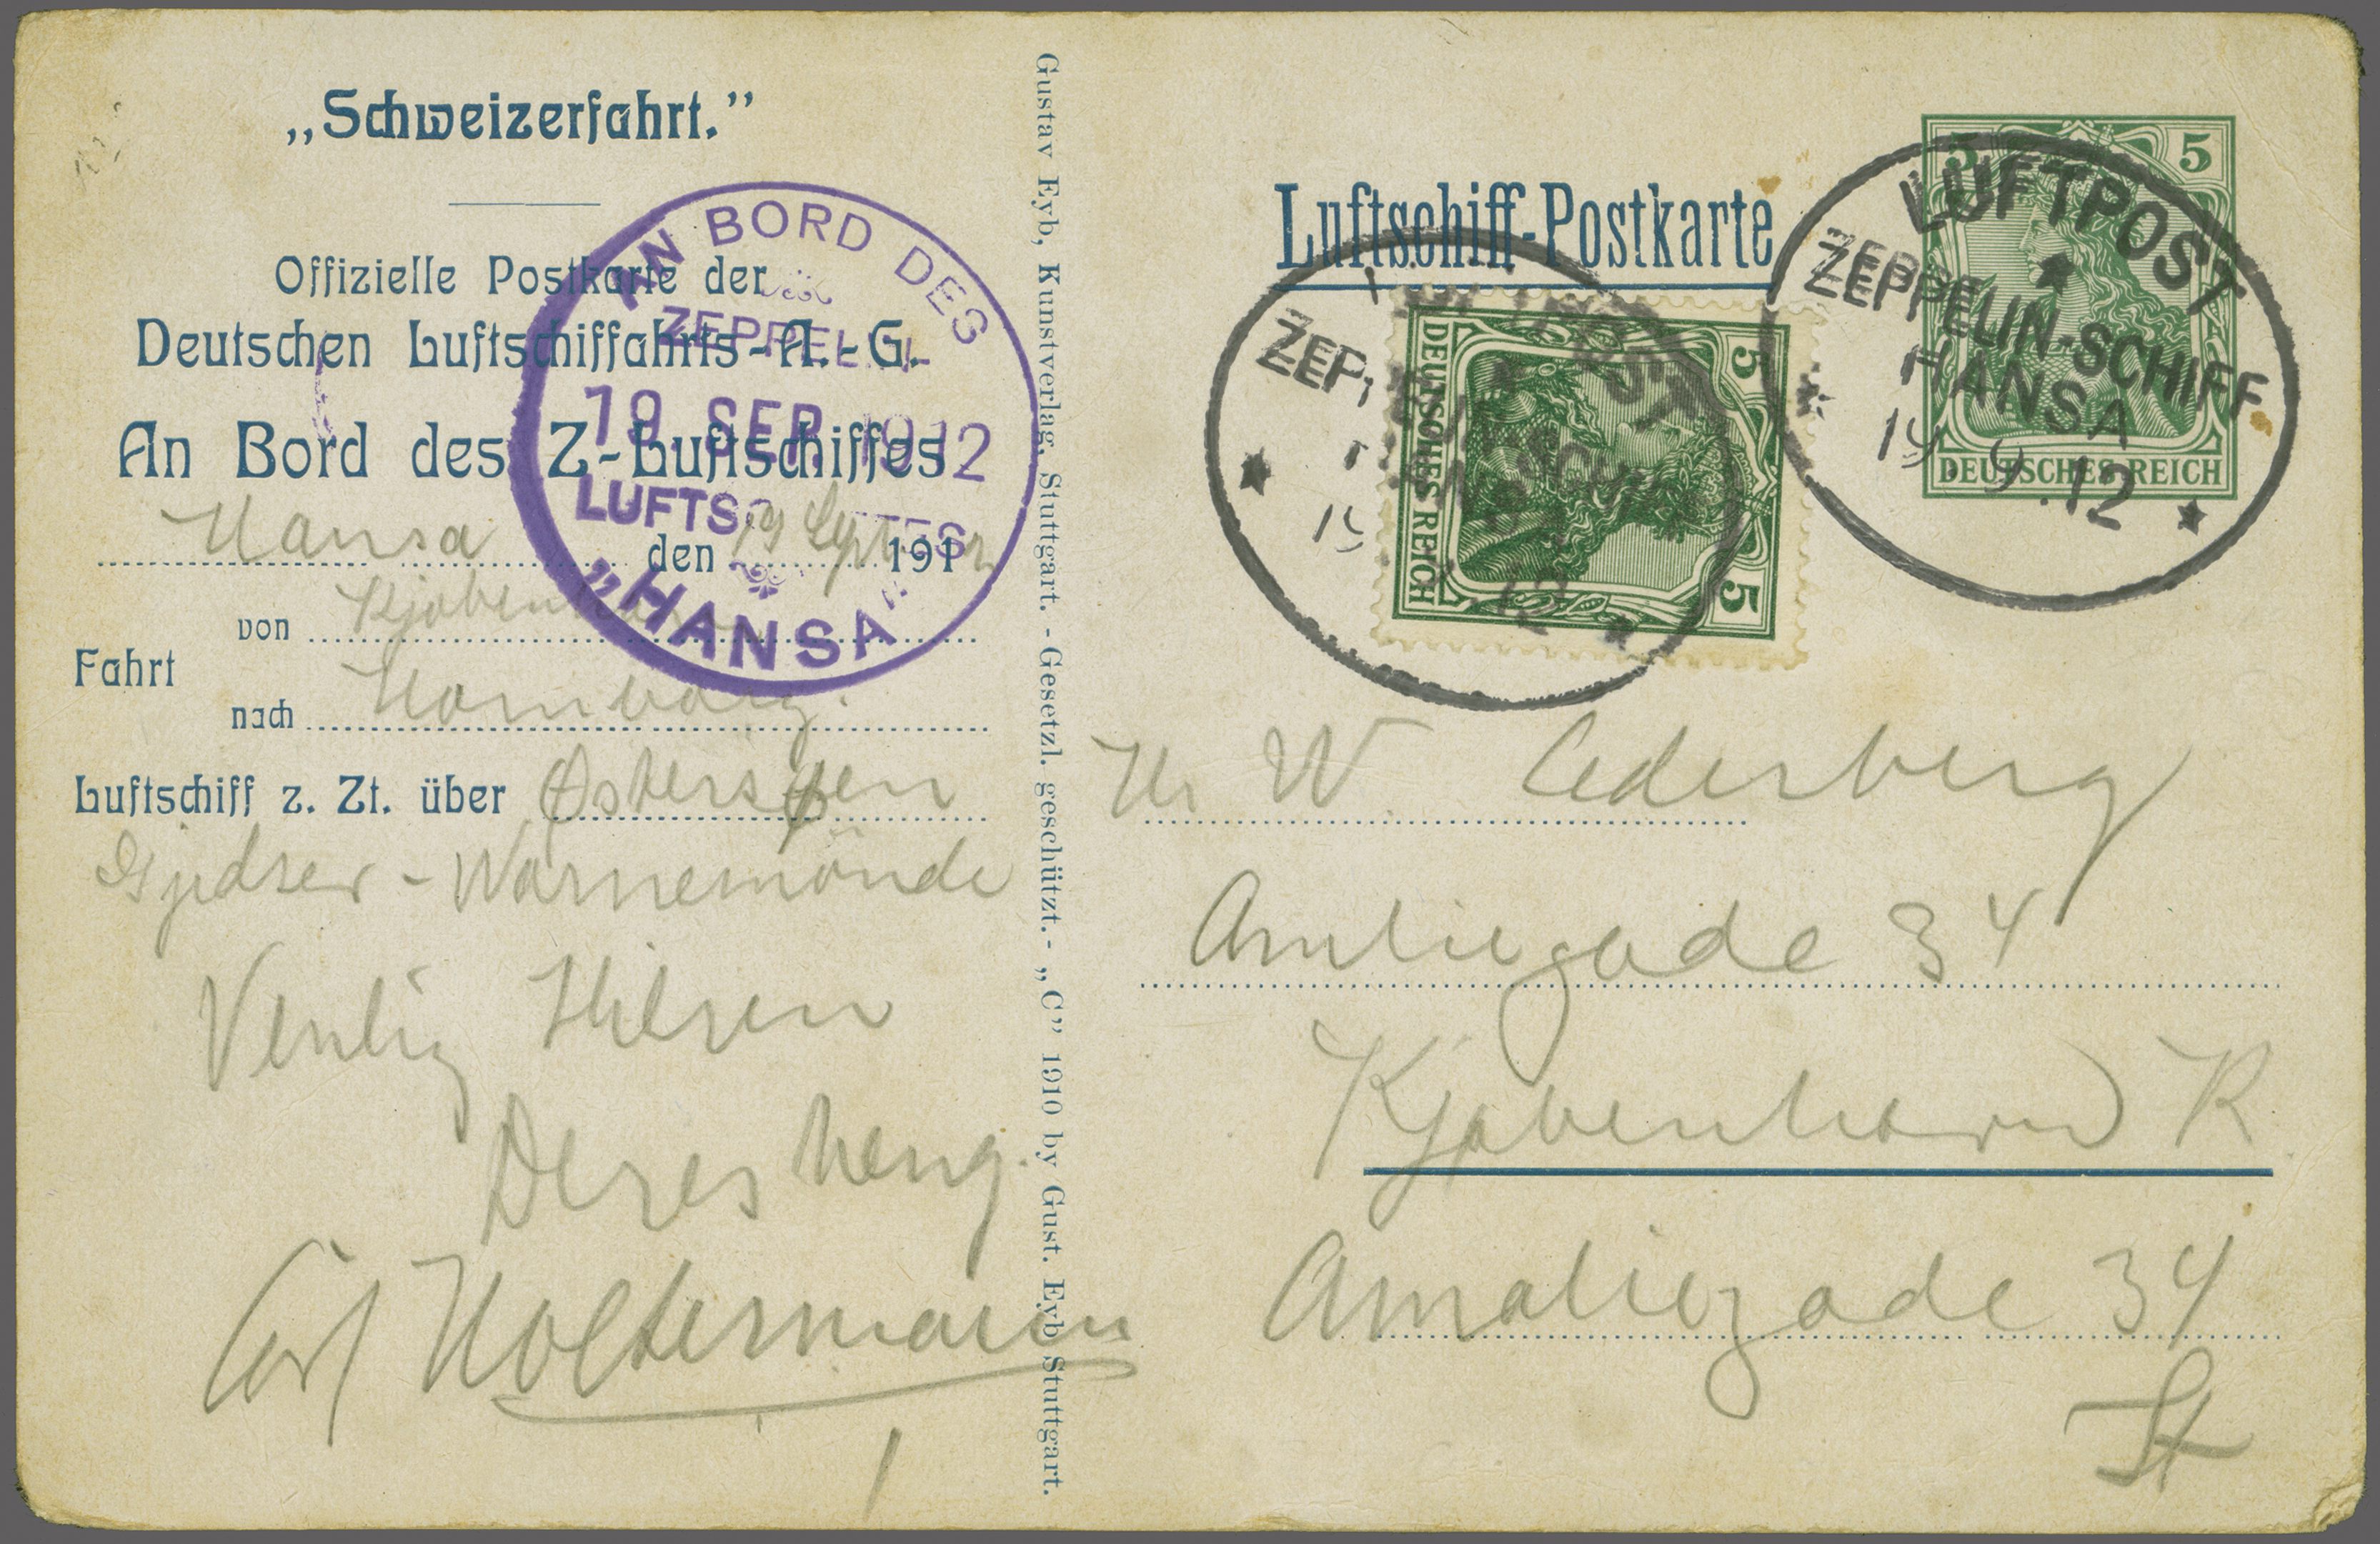 „Schweizerfahrt.”
Offizielle Postkarte der
Deutschen Luftschiffahrts-A.-G.
An Bord des Z-Luftschiffes
Hansa den 19 Sept 1912
Fahrt
von Kjøbenhavn
nach Hamborg.
Luftschiff z. Zt. über Østersøen
Gjedser - Warnemönde
Venlig Hilsen
Deres heng.
Carl Holtermann
AN BORD DES
ZEPPELIN
19. SEP. 1912
LUFTSCHIFFES
„HANSA“
Gustav Eyb, Kunstverlag, Stuttgart. - Gesetzl. geschützt. - „C” 1910 by Gust. Eyb Stuttgart.
Luftschiff-Postkarte
5 5
DEUTSCHES REICH
LUFTPOST
ZEPPELIN-SCHIFF
HANSA
19.9.12
5 5
DEUTSCHES REICH
LUFTPOST
ZEPPELIN-SCHIFF
HANSA
19.9.12
Hr W. Cederberg
Amliegade 34
Kjøbenhavn K
Amaliegade 34
St